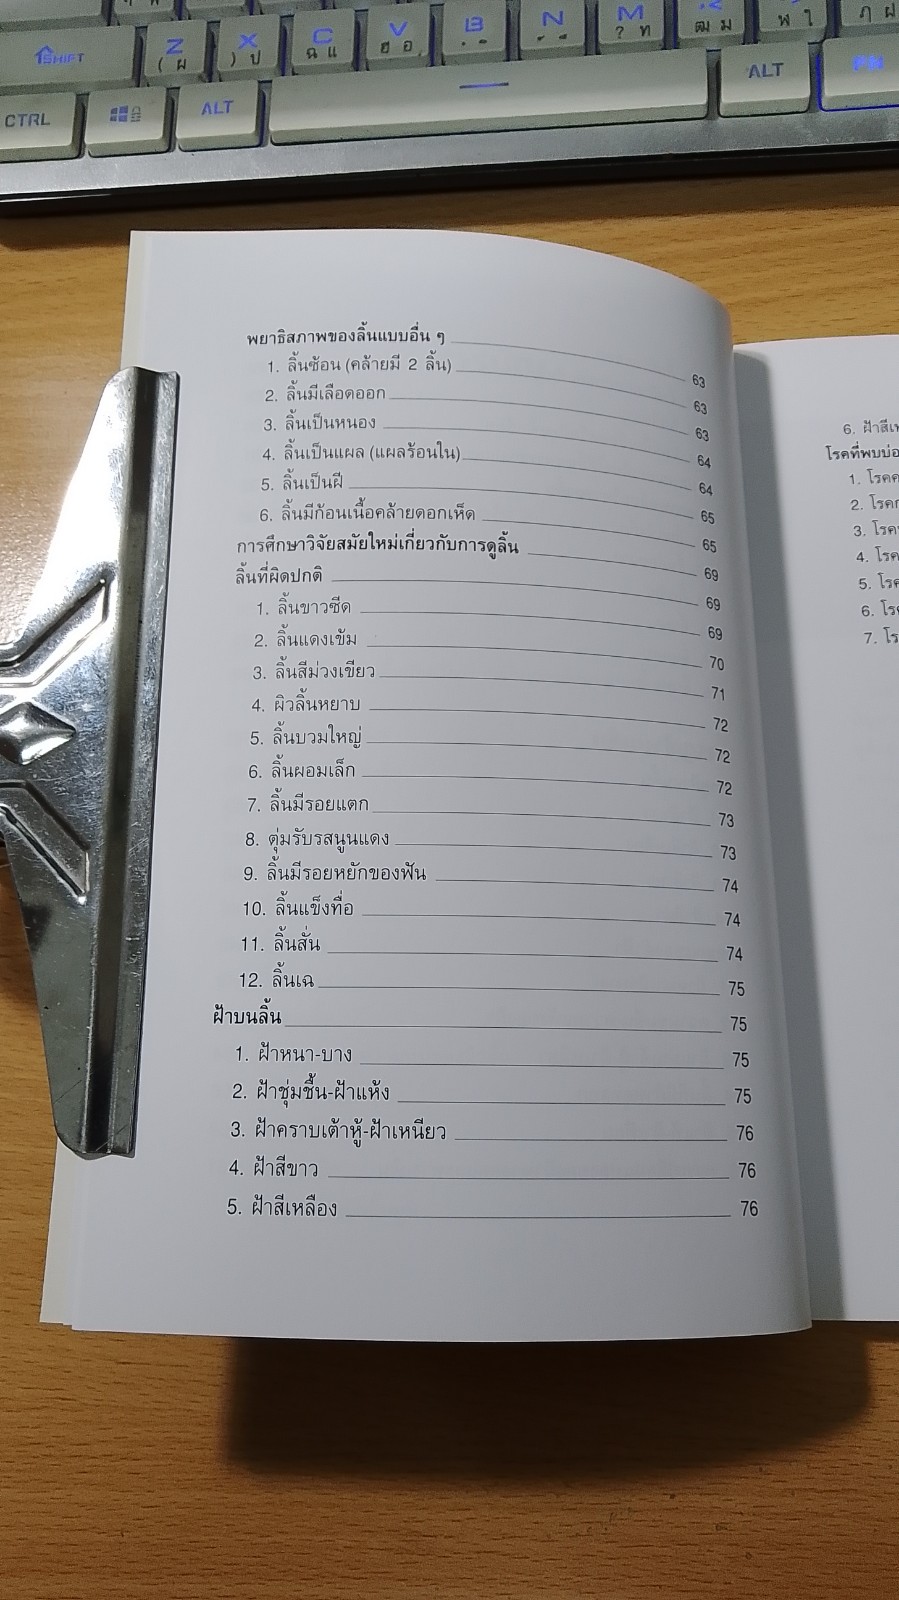 SHIFT Z X C V B N M
( ผ ) ป ฉ แ ฮ อ ? ท ฒ ม
CTRL ALT ALT FN
พยาธิสภาพของลิ้นแบบอื่น ๆ 63
1. ลิ้นซ้อน (คล้ายมี 2 ลิ้น) 63
2. ลิ้นมีเลือดออก 63
3. ลิ้นเป็นหนอง 64
4. ลิ้นเป็นแผล (แผลร้อนใน) 64
5. ลิ้นเป็นฝี 65
6. ลิ้นมีก้อนเนื้อคล้ายดอกเห็ด 65
การศึกษาวิจัยสมัยใหม่เกี่ยวกับการดูลิ้น 69
ลิ้นที่ผิดปกติ 69
1. ลิ้นขาวซีด 69
2. ลิ้นแดงเข้ม 70
3. ลิ้นสีม่วงเขียว 71
4. ผิวลิ้นหยาบ 72
5. ลิ้นบวมใหญ่ 72
6. ลิ้นผอมเล็ก 72
7. ลิ้นมีรอยแตก 73
8. ตุ่มรับรสนูนแดง 73
9. ลิ้นมีรอยหยักของฟัน 74
10. ลิ้นแข็งทื่อ 74
11. ลิ้นสั่น 74
12. ลิ้นเฉ 75
ฝ้าบนลิ้น 75
1. ฝ้าหนา-บาง 75
2. ฝ้าชุ่มชื้น-ฝ้าแห้ง 75
3. ฝ้าคราบเต้าหู้-ฝ้าเหนียว 76
4. ฝ้าสีขาว 76
5. ฝ้าสีเหลือง 76
6. ฝ้าสีเ
โรคที่พบบ่อ
1. โรคค
2. โรค
3. โรค
4. โรค
5. โรค
6. โร
7. โร